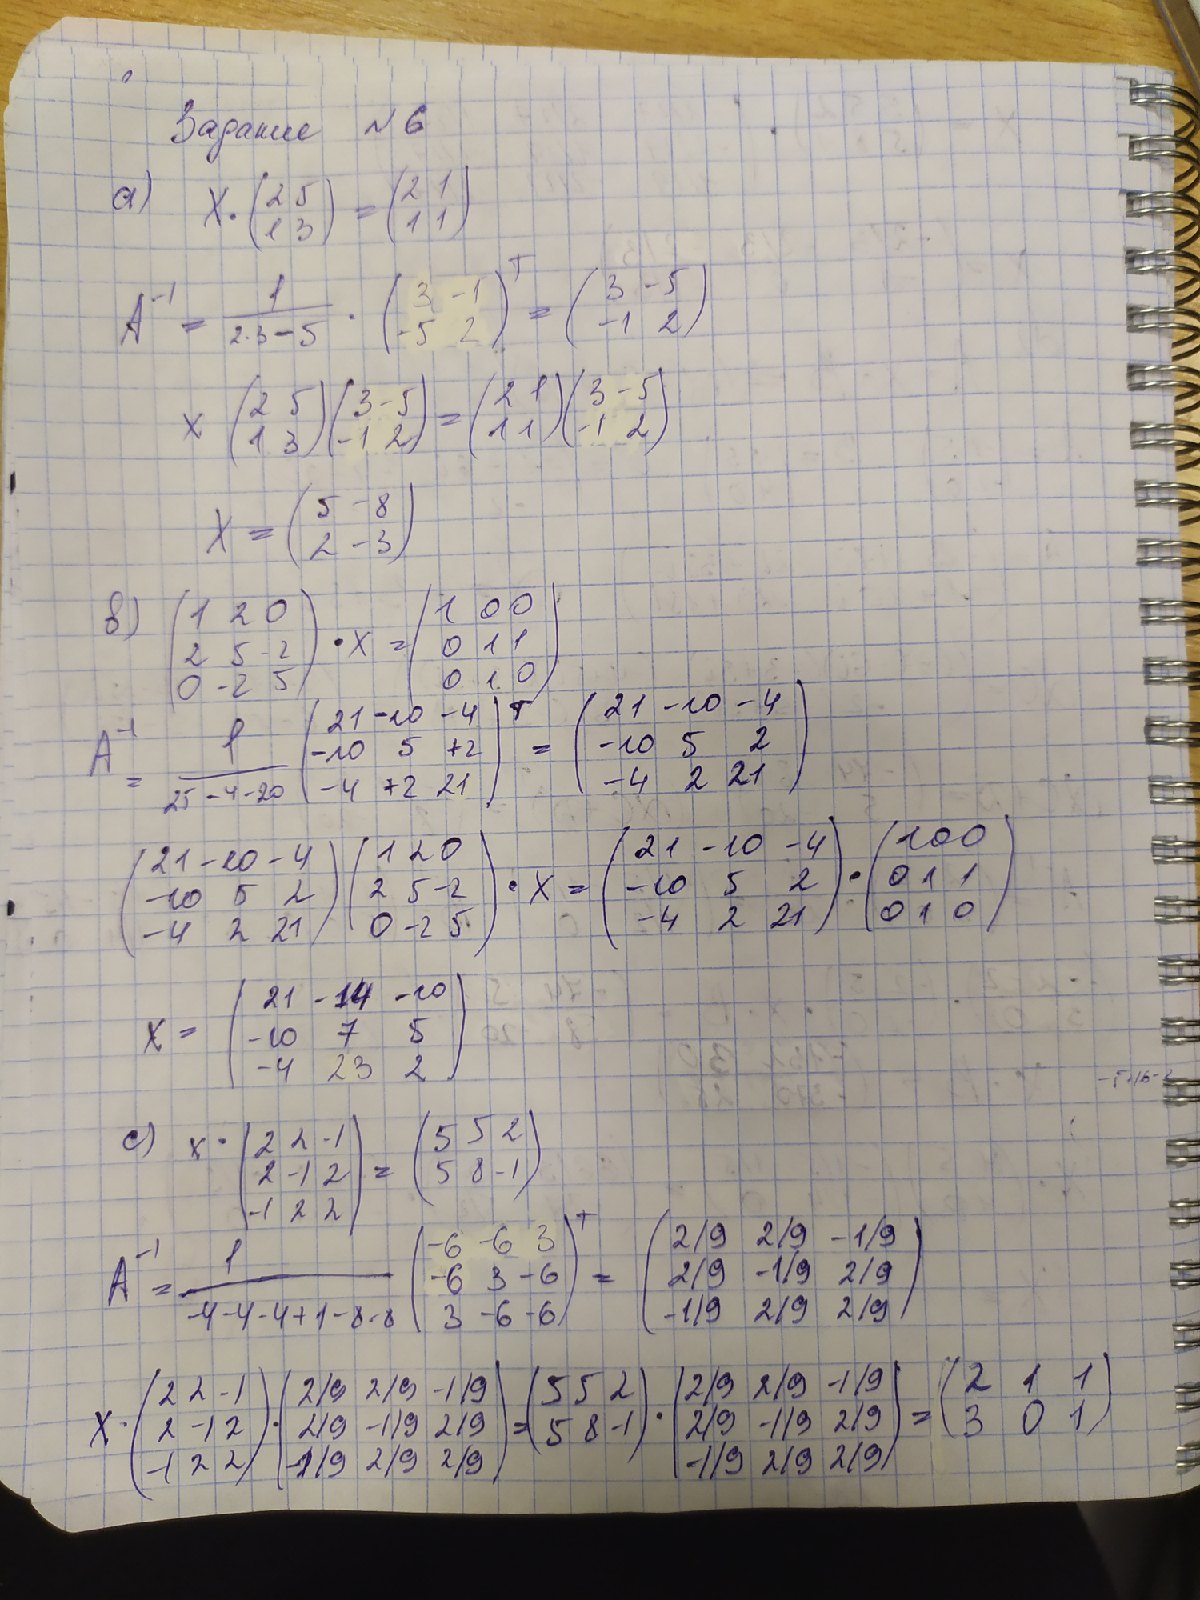 Задание №6
а) X · (2 5 / 1 3) = (2 1 / 1 1)
A⁻¹ = 1/(2·3-5) · (3 -1 / -5 2)ᵀ = (3 -5 / -1 2)
x (2 5 / 1 3)(3 -5 / -1 2) = (2 1 / 1 1)(3 -5 / -1 2)
X = (5 -8 / 2 -3)
в) (1 2 0 / 2 5 -2 / 0 -2 5) · X = (1 0 0 / 0 1 1 / 0 1 0)
A⁻¹ = 1/(25-4-20) (21 -10 -4 / -10 5 +2 / -4 +2 21)ᵀ = (21 -10 -4 / -10 5 2 / -4 2 21)
(21 -10 -4 / -10 5 2 / -4 2 21)(1 2 0 / 2 5 -2 / 0 -2 5) · X = (21 -10 -4 / -10 5 2 / -4 2 21) · (1 0 0 / 0 1 1 / 0 1 0)
X = (21 -14 -10 / -10 7 5 / -4 23 2)
с) x · (2 2 -1 / 2 -1 2 / -1 2 2) = (5 5 2 / 5 8 -1)
A⁻¹ = 1/(-4-4-4+1-8-8) (-6 -6 3 / -6 3 -6 / 3 -6 -6)ᵀ = (2/9 2/9 -1/9 / 2/9 -1/9 2/9 / -1/9 2/9 2/9)
X · (2 2 -1 / 2 -1 2 / -1 2 2) · (2/9 2/9 -1/9 / 2/9 -1/9 2/9 / -1/9 2/9 2/9) = (5 5 2 / 5 8 -1) · (2/9 2/9 -1/9 / 2/9 -1/9 2/9 / -1/9 2/9 2/9) = (2 1 1 / 3 0 1)